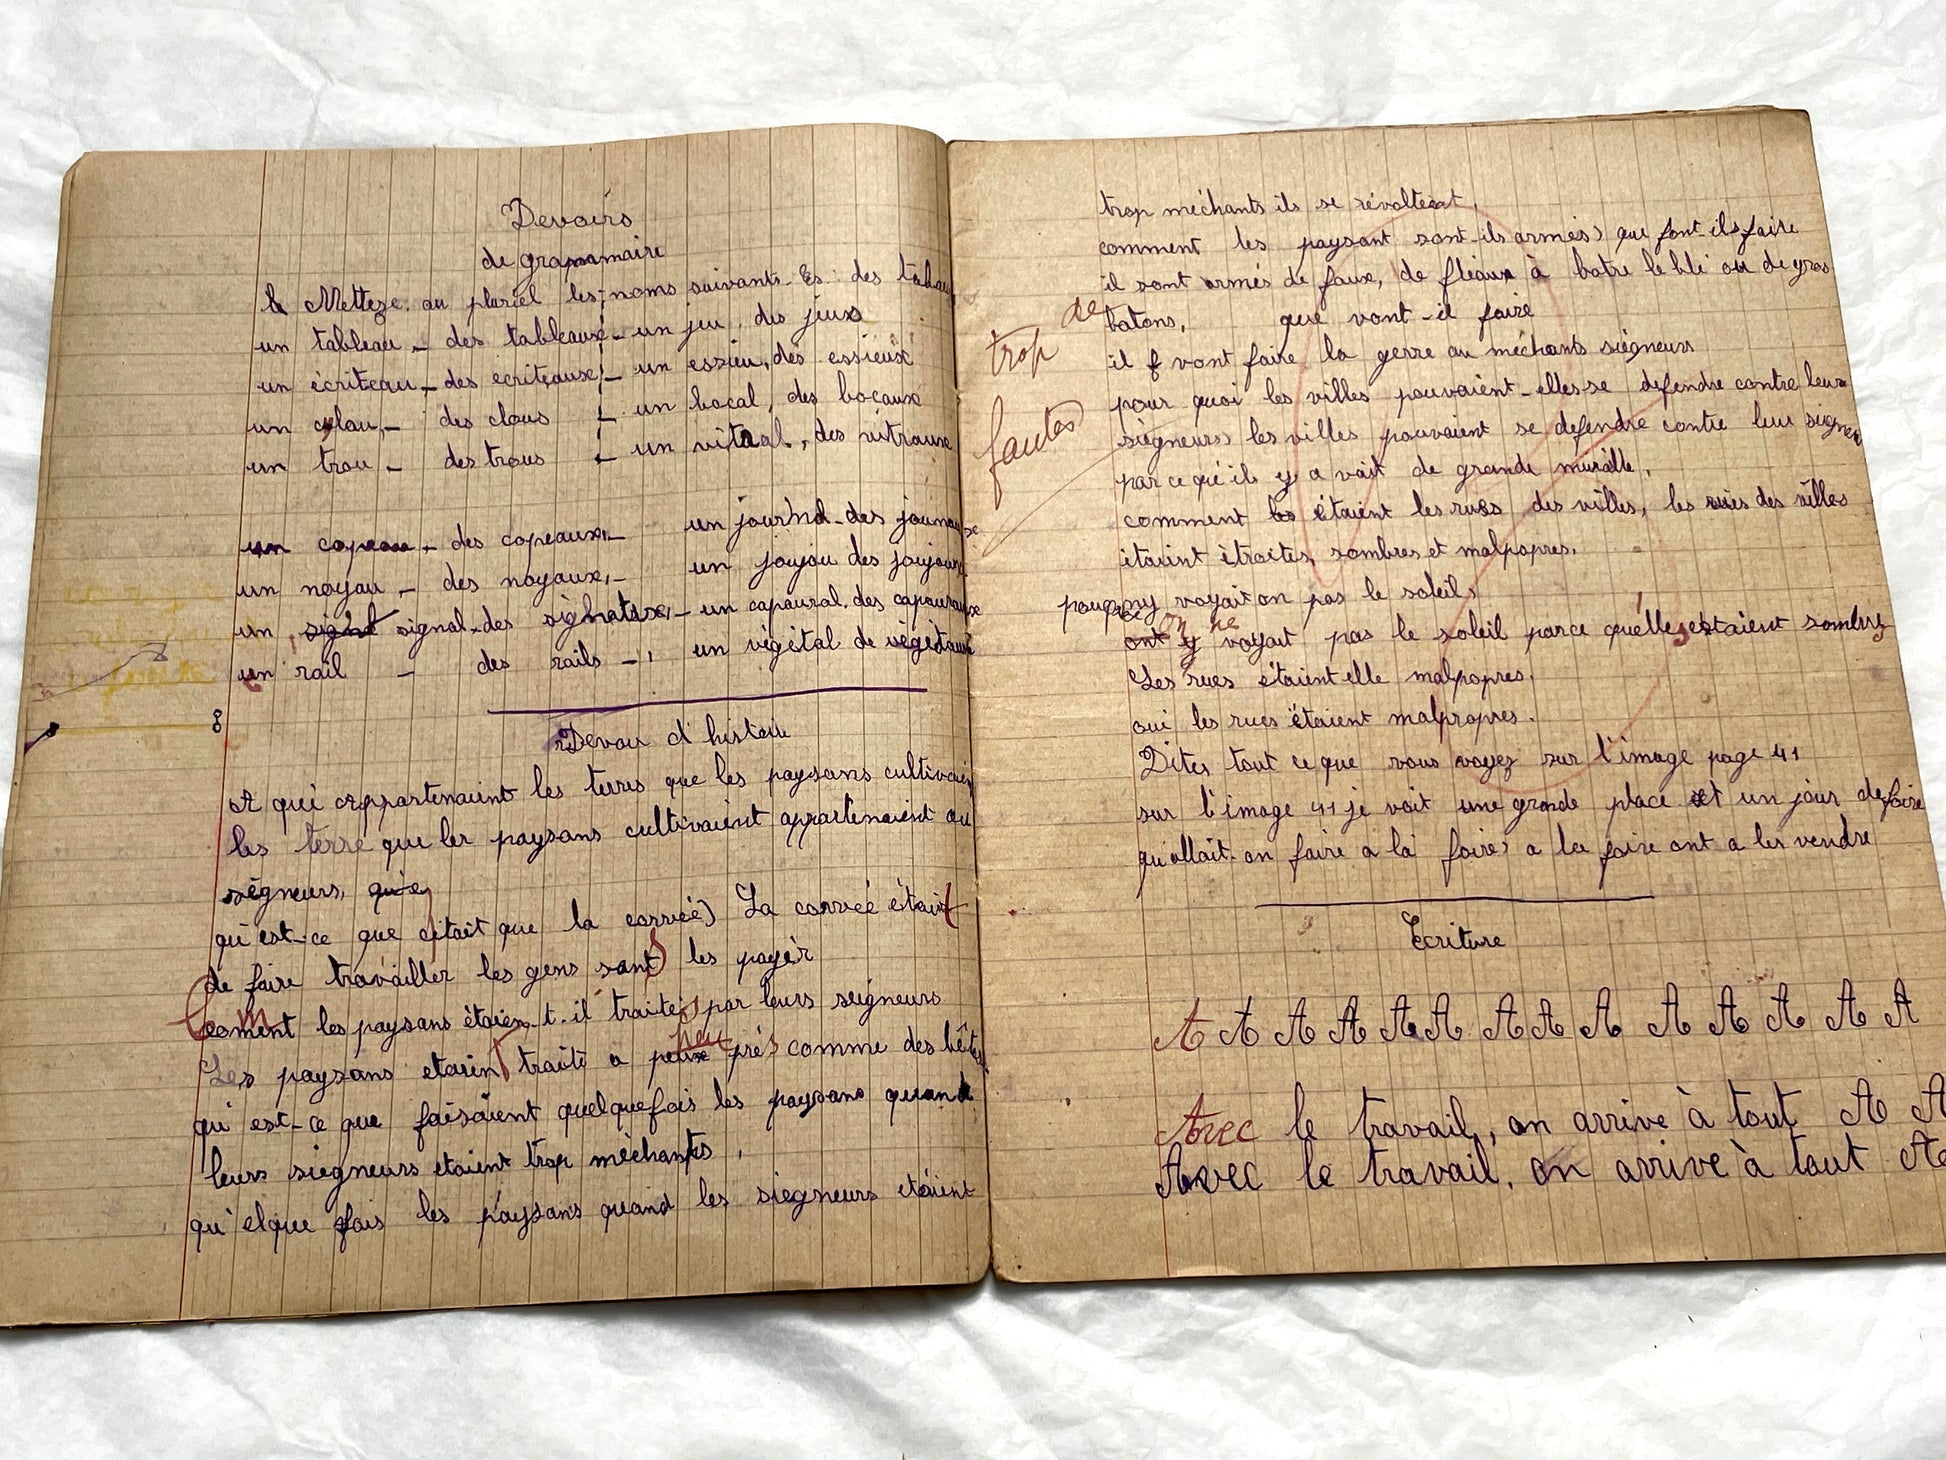 Devoirs
de grammaire
Mettez au pluriel les noms suivants. Ex: des tableau
un tableau - des tableaux - un jeu, des jeux
un écriteau - des ecriteaux - un essieu, des essieux
un clou - des clous - un bocal, des bocaux
un trou - des trous - un vitral, des vitraux
un copeau - des copeaux, - un journal - des jounaux
un noyau - des noyaux, - un joujou des joujoux
un signal - des - un capoural, des capouraux
un rail - des rails - , un végétal de végétaux
8
Devoir d'histoire
A qui appartenaient les terres que les paysans cultivaient
les terre que les paysans cultivaient appartenaient au
ségneurs, que
qu'est-ce que cétait que la corvéé) La corvéé était
de faire travailler les gens sant les payér
Coment les paysans étaien-t-il traités par leurs seigneurs
Les paysans etaien traité a peu prés comme des bêtes
qui est-ce que faisaient quelquefois les paysans quand
leurs siegneurs etaient trop méchants,
qu'elque fois les paysans quand les siegneurs etaient
trop méchants ils se révolteat,
comment les paysant sont-ils armés) que font-ils faire
il sont armés de faux, de fléaux à batre le blé ou de gros
batons, que vont-il faire
de trop fautes
il f vont faire la gerre au méchants siégneurs
pour quoi les villes pouvaient-elles se defendre contre leurs
siégneurs les villes pouvaient se defendre contre leur signeu
par ce qu'ils y a vait de grande muraille,
comment étaient les rues des villes, les rues des villes
étaint étraites, sombres et malpopres.
pourquoi ny voyait on pas le soleil,
ont on y ne voyait pas le soleil parce qu'elles estaient sombres
Les rues étaient elle malpopres.
oui les rues étaient malpropres.
Dites tout ce que vous voyez sur l'image page 41
sur l'image 41 je voit une grande place et un jour de foire
qu'allait-on faire a la foire, a la foire ont a les vendre
Ecriture
A A A A A A A A A A A A A A
Avec le travail, on arrive à tout A A
Avec le travail, on arrive à tout A